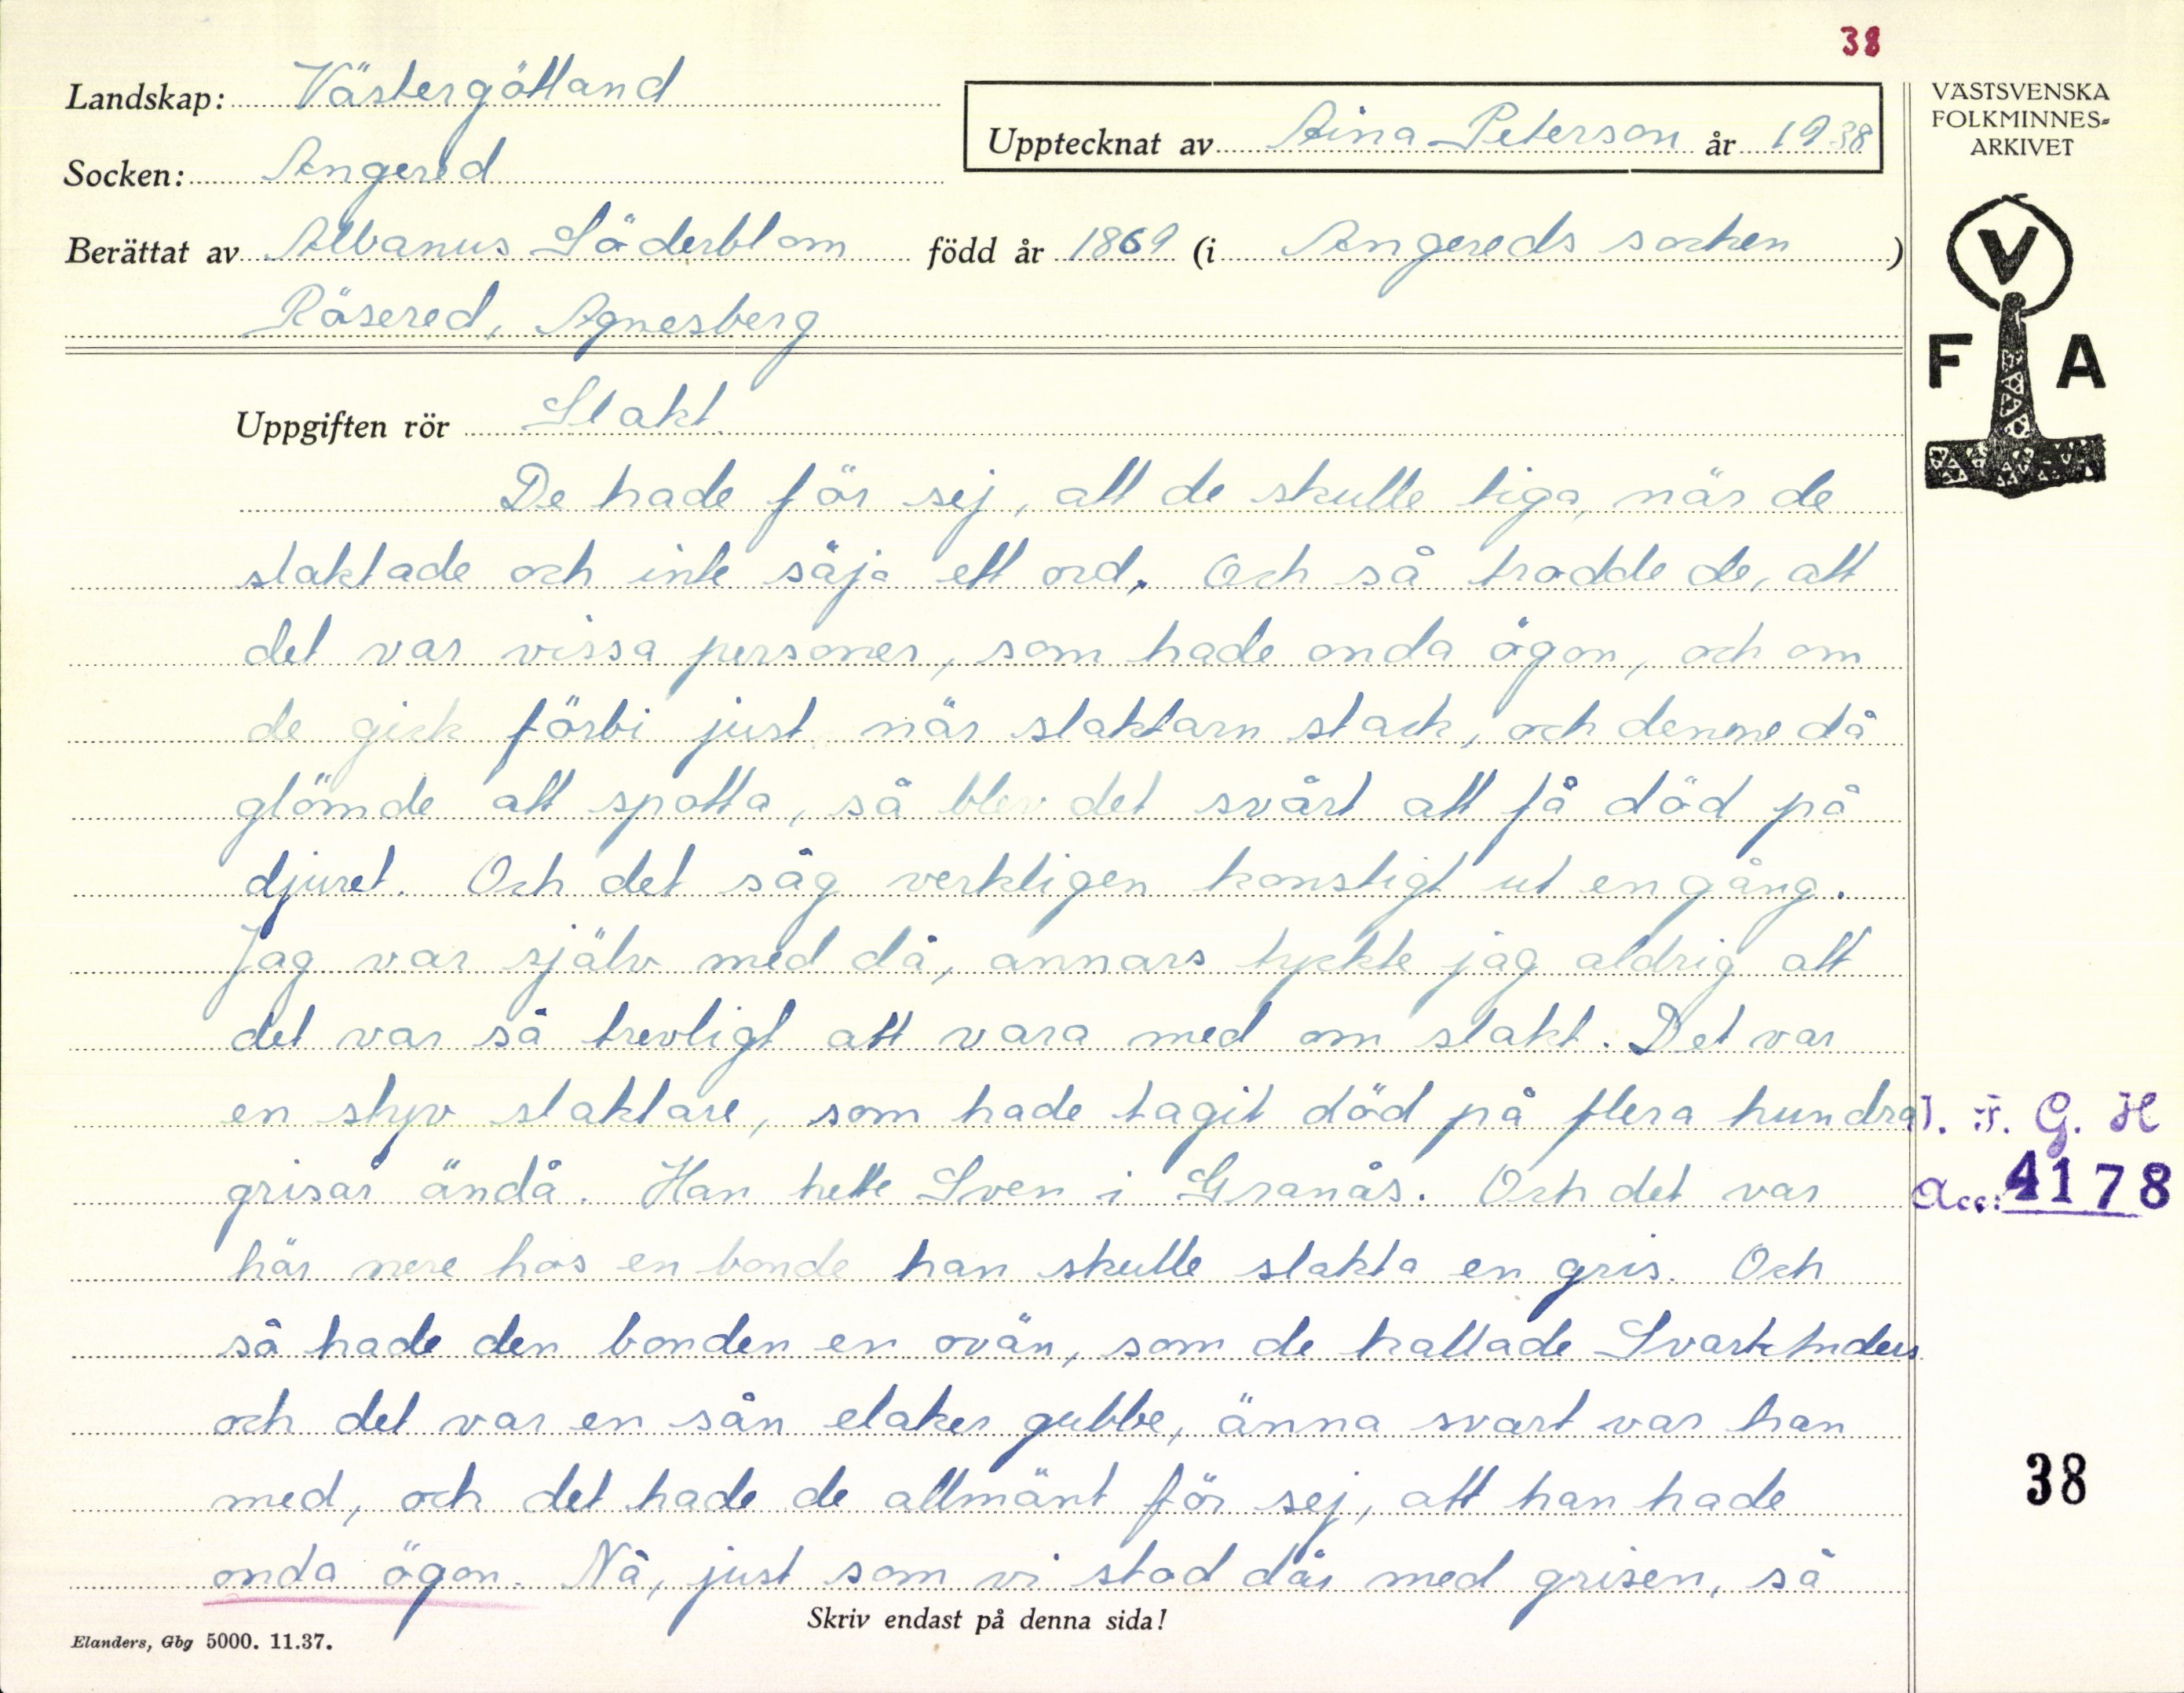 38
Landskap: Västergötland
Upptecknat av Aina Peterson år 1938
VÄSTSVENSKA
FOLKMINNES=
ARKIVET
Socken: Angered
Berättat av Albanus Söderblom född år 1869 (i Angereds socken)
Rösered, Agnesberg
V
F A
Uppgiften rör Slakt.
De hade för sej, att de skulle tiga, när de
slaktade och inte säja ett ord. Och så trodde de, att
det var vissa personer, som hade onda ögon, och om
de gick förbi just när slaktarn stack, och denne då
glömde att spotta, så blev det svårt att få död på
djuret. Och det såg verkligen konstigt ut en gång.
Jag var själv med då, annars tyckte jag aldrig att
det var så trevligt att vara med om slakt. Det var
en styv slaktare, som hade tagit död på flera hundra
grisar ändå. Han hette Sven i Granås. Och det var
här nere hos en bonde han skulle slakta en gris. Och
så hade den bonden en ovän, som de kallade Svarte Anders
och det var en sån elaker gubbe, änna svart var han
med, och det hade de allmänt för sej, att han hade
onda ögon. Nå, just som vi stod där med grisen, så
I. F. G. H
Acc: 4178
38
Skriv endast på denna sida!
Elanders, Gbg 5000. 11.37.